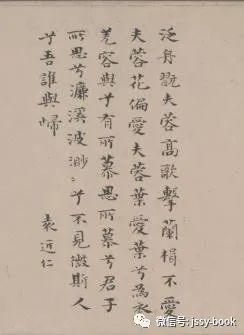 泛舟翫夫蓉高歌擊蘭楫不愛
夫蓉花偏愛夫蓉葉愛葉兮為衣
羌容與兮有所慕思所慕兮君子
所思兮濂溪波渺〻兮不見微斯人
兮吾誰與歸
袁近仁
微信号: jssy-book